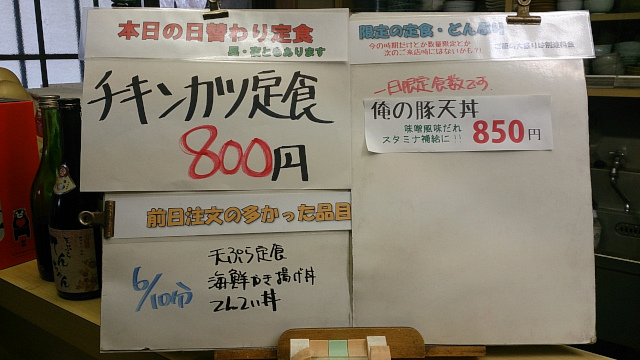 本日の日替わり定食
昼・夜ともあります
チキンカツ定食
800円
前日注文の多かった品目
6/10分
天ぷら定食
海鮮かき揚げ丼
てんてい丼
限定の定食・どんぶり
今の時期だけとか数量限定とか
次のご来店時にはないかも?!
一日限定食数です
俺の豚天丼
味噌風味だれ
スタミナ補給に!!
850円